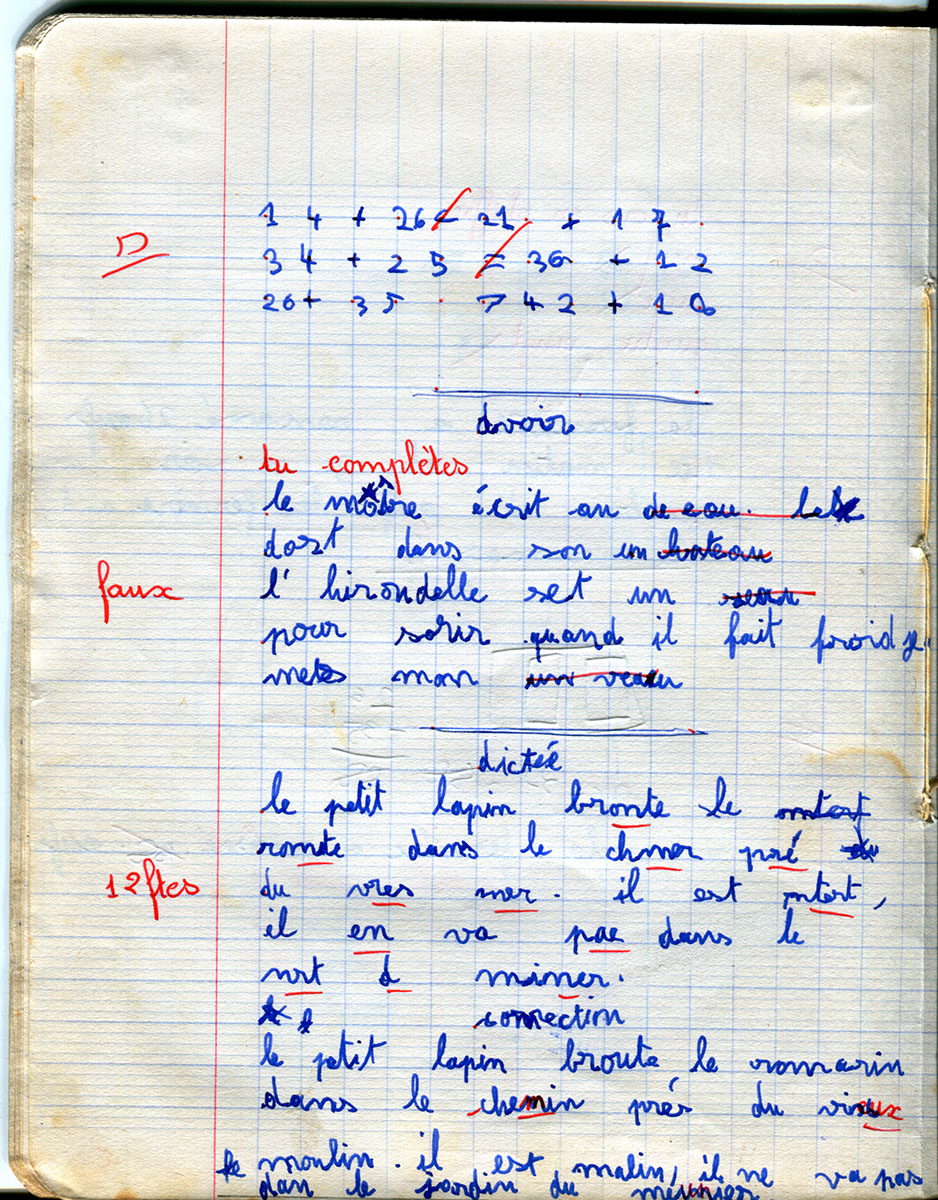 14 + 26 = 21 + 17
D
34 + 25 = 36 + 12
26 + 35 7 42 + 10
dvoir
tu complètes
le maître écrit au de eau. le
dort dans son un bateau
faux
l'hirondelle set un seau
pour sorir quand il fait froid je
mets mon un veau
dictée
le petit lapin bronte le
romte dans le chmer pré
12 ftes
du vres mer. il est mtert,
il en va pae dans le
nrt d miner.
correction
le petit lapin broute le romarin
dans le chemin prés du vieux
moulin. il est malin, il ne va pas
dan le jardin du meunier